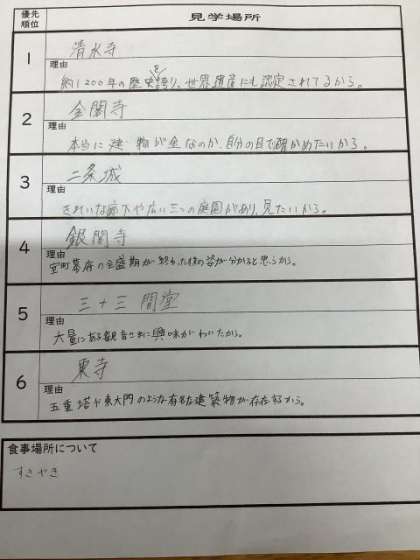 優先順位 見学場所
1 清水寺
理由
約1200年の歴史を誇り、世界遺産にも認定されてるから。
2 金閣寺
理由
本当に建物が金なのか、自分の目で確かめたいから。
3 二条城
理由
きれいな廊下や広い三つの庭園があり、見たいから。
4 銀閣寺
理由
室町幕府の全盛期が終わった後の姿が分かると思うから。
5 三十三間堂
理由
大量にある観音さまに興味がわいたから。
6 東寺
理由
五重塔や東大門のような有名な建築物が存在するから。
食事場所について
すきやき